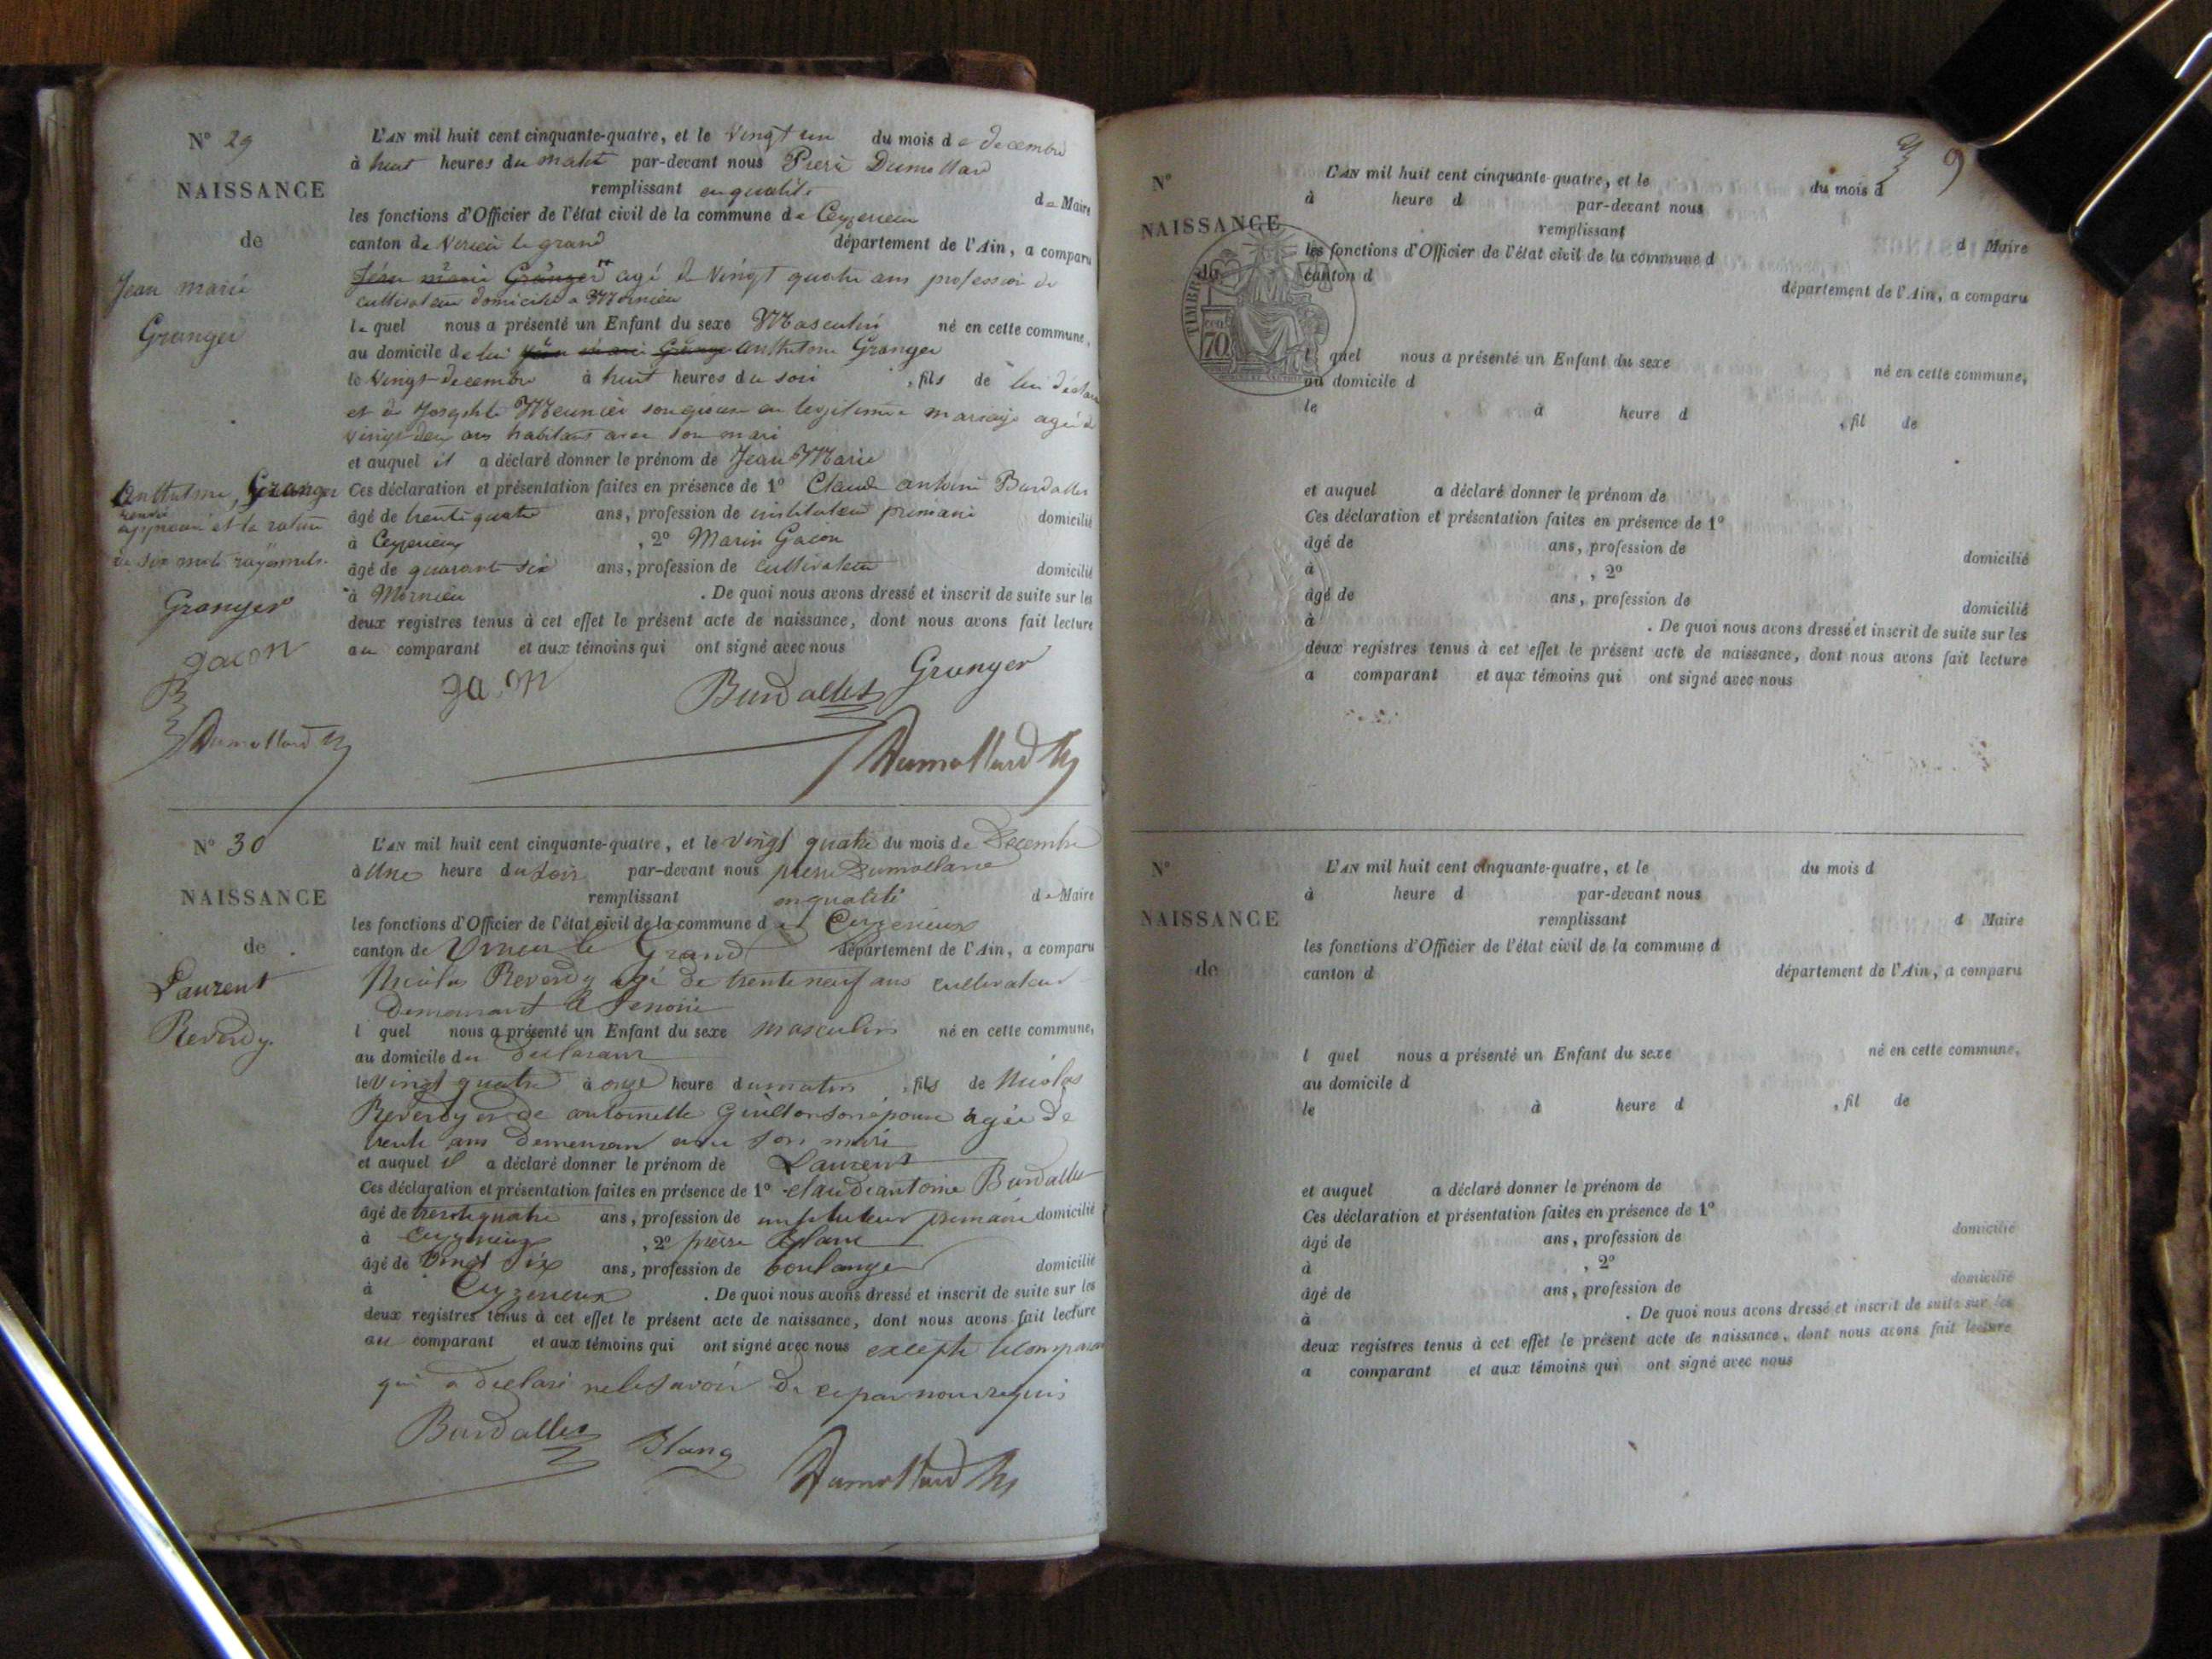 N° 29
NAISSANCE
de
Jean marie
Granger
L'AN mil huit cent cinquante-quatre, et le vingt un du mois de decembre
à huit heures du matin par-devant nous Pierre Dumollard
remplissant en qualité de Maire
les fonctions d'Officier de l'état civil de la commune de Ceyzerieu
canton de Virieu le grand département de l'Ain, a comparu
Jean marie Granger agé de Vingt quatre ans profession de
cultivateur domicilié a Mornieu
lequel nous a présenté un Enfant du sexe Masculin né en cette commune,
au domicile de lui Jean marie Granger Anthelme Granger
le Vingt decembre à huit heures du soir, fils de lui déclarant
et de Josephte Meunier son épouse en legitime mariage agée de
vingt deux ans habitant avec son mari
et auquel il a déclaré donner le prénom de Jean Marie
Ces déclaration et présentation faites en présence de 1° Claude antoine Burdallet
âgé de trente quatre ans, profession de instituteur primaire domicilié
à Ceyzerieu, 2° Marin Gacon
âgé de quarante six ans, profession de cultivateur domicilié
à Mornieu. De quoi nous avons dressé et inscrit de suite sur les
deux registres tenus à cet effet le présent acte de naissance, dont nous avons fait lecture
au comparant et aux témoins qui ont signé avec nous
Anthelme, Granger
renvoi
approuvé et la rature
de six mots rayés nuls.
Granger
gacon
B
Dumollard
gacon Burdallet Granger
Dumollard
N° 30
NAISSANCE
de
Laurent
Reverdy
L'AN mil huit cent cinquante-quatre, et le vingt quatre du mois de Decembre
à Une heure du soir par-devant nous pierre Dumollard
remplissant en qualité de Maire
les fonctions d'Officier de l'état civil de la commune de Ceyzerieux
canton de Virieu le Grand département de l'Ain, a comparu
Nicolas Reverdy agé de trente neuf ans cultivateur
demeurant à
l quel nous a présenté un Enfant du sexe masculin né en cette commune,
au domicile du declarant
le Vingt quatre à onze heure du matin, fils de Nicolas
Reverdy et de antoinette son épouse agée de
trente ans demeurant avec son mari
et auquel il a déclaré donner le prénom de Laurent
Ces déclaration et présentation faites en présence de 1° claude antoine Burdallet
âgé de trente quatre ans, profession de instituteur primaire domicilié
à Ceyzerieux, 2° pierre Blanc
âgé de vingt six ans, profession de boulanger domicilié
à Ceyzerieux. De quoi nous avons dressé et inscrit de suite sur les
deux registres tenus à cet effet le présent acte de naissance, dont nous avons fait lecture
au comparant et aux témoins qui ont signé avec nous excepté le comparant
qui a declaré ne le savoir de ce par nous requis
Burdallet Blanc Dumollard
9
N°
NAISSANCE
de
TIMBRE
70
L'AN mil huit cent cinquante-quatre, et le du mois d
à heure d par-devant nous
remplissant d Maire
les fonctions d'Officier de l'état civil de la commune d
canton d département de l'Ain, a comparu
l quel nous a présenté un Enfant du sexe né en cette commune,
au domicile d
le à heure d, fil de
et auquel a déclaré donner le prénom de
Ces déclaration et présentation faites en présence de 1°
âgé de ans, profession de domicilié
à, 2°
âgé de ans, profession de domicilié
à. De quoi nous avons dressé et inscrit de suite sur les
deux registres tenus à cet effet le présent acte de naissance, dont nous avons fait lecture
a comparant et aux témoins qui ont signé avec nous
N°
NAISSANCE
de
L'AN mil huit cent cinquante-quatre, et le du mois d
à heure d par-devant nous
remplissant d Maire
les fonctions d'Officier de l'état civil de la commune d
canton d département de l'Ain, a comparu
l quel nous a présenté un Enfant du sexe né en cette commune,
au domicile d
le à heure d, fil de
et auquel a déclaré donner le prénom de
Ces déclaration et présentation faites en présence de 1°
âgé de ans, profession de domicilié
à, 2°
âgé de ans, profession de domicilié
à. De quoi nous avons dressé et inscrit de suite sur les
deux registres tenus à cet effet le présent acte de naissance, dont nous avons fait lecture
a comparant et aux témoins qui ont signé avec nous